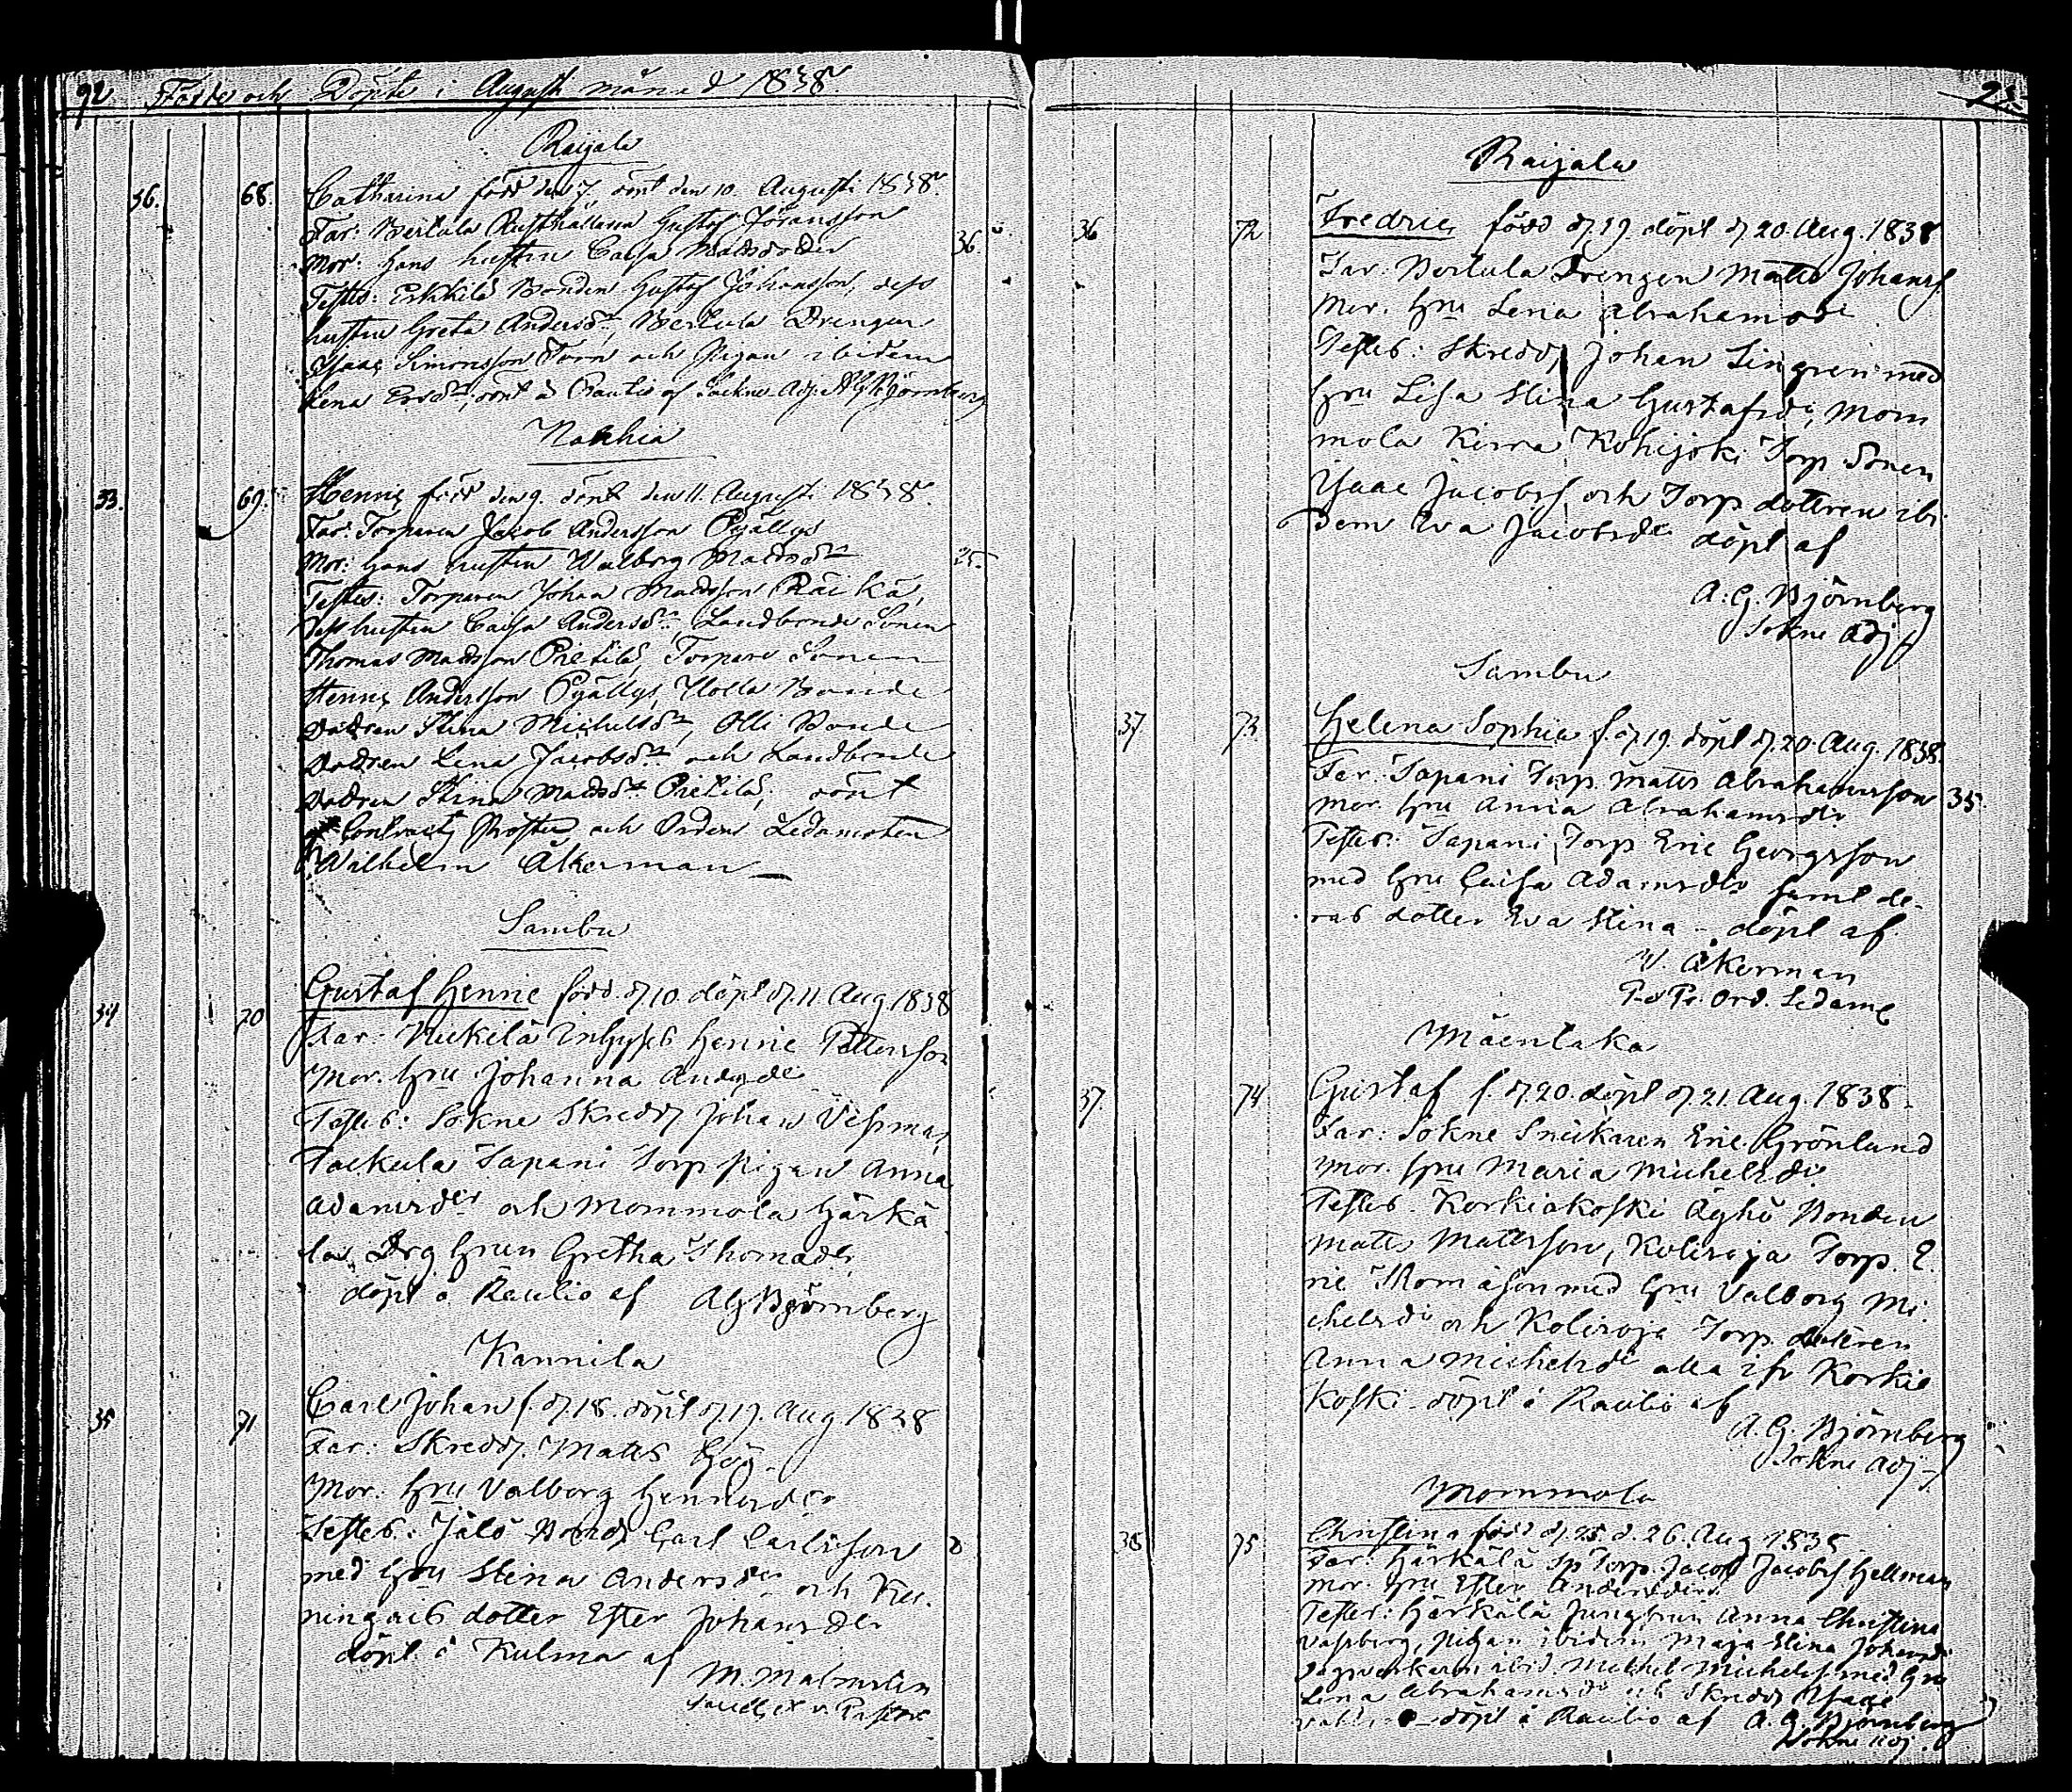 92 Födde och Döpte i Augusti månad 1838.
Raijala
36. 68. Catharina född den 7. döpt den 10. Augusti 1838.
Far: Bertula Rusthållaren Gustaf Göransson
Mor: Hans hustru Caisa Mattsdotter 36.
Testes: Erkkilä Bonden Gustaf Johansson, dess
hustru Greta Andersdr, Bertula Drengen
Isaac Simonsson Torn och Pigan ibidem
Lena Ersdr, döpt å Rautio af Sockne Adj: A G Björnberg
Nakkia
33. 69. Henric född den 9. döpt den 11. Augusti 1838.
Far: Torparen Jacob Andersson Pyällys
Mor: Hans hustru Walborg Mattsdr 25.
Testes: Torparen Johan Mattsson Räikä,
dess hustru Caisa Andersdr Landbonde Sonen
Thomas Mattsson Pietilä, Torpare Sonen
Henric Andersson Pyällys, Ylolla Bonde
Dottren Stina Michelsdr, Olli Bonde
Dottren Lena Jacobsdr och Landbonde
Dottren Stina Mattsdr Pietilä; döpt
af Contracts Prosten och Ordens Ledamoten
Wilhelm Åkerman
Sambu
34 70 Gustaf Henric född d. 10. döpt d. 11. Aug. 1838
Far: Nukilä Inhyses Henric Pettersson
Mor. Hru Johanna Andersdr
Testes: Sokne Skredd Johan Vesman,
Tackula Tapani Torp pigan Anna
Adamsdr och Mommola Härkä
la Drg Hrun Gretha Thomadr,
döpt å Rautio af AGBjörnberg
Kannila
35 71 Carl Johan f. d. 18. döpt d. 19. Aug 1838
Far: Skredd. Matts
Mor: Hru Valborg Henricsdr
Testes: Jälö Bond Carl Carlsson
med Hru Stina Andersdr och Ku-
ningais dotter Ester Johansdr
döpt å Kulma af
M. Malmstén
25
Raijala
36 72 Fredric, född d. 19. döpt d. 20. Aug. 1838
Far: Bertula Drengen Matts Johanss
Mor. Hru Lena Abrahamsdr
Testes: Skredd, Johan Lingren med
Hru Lisa Stina Gustafsdr, Mom
mola Kirra Kohijoki Torp Sonen
Isaac Jacobss och Torp dottren ibi-
dem Eva Jacobsdr döpt af
A: G. Björnberg
Sokne Adj
Sambu
37 73 Helena Sophia f. d. 19. döpt d. 20. Aug. 1838.
Far: Tapani Torp. Matts Abrahamsson 35.
Mor. Hru Anna Abrahamsdr
Testes: Tapani Torp Eric Georgsson
med Hru Caisa Adamsdr samt de-
ras dotter Eva Stina - döpt af
W. Åkerman
P. o Pr. Ord. Ledam
Mäenlaka
37. 74 Gustaf f. d. 20. döpt d. 21. Aug. 1838.
Far: Sokne Snickaren Eric Grönlund
Mor. Hru Maria Michelsdr
Testes. Korkiakoski Äyhö Bonden
Matts Mattsson, Koliroja Torp. E-
ric Thomasson med Hru Valborg Mi-
chelsdr och Koliroja Torp. dottren
Anna Michelsdr alla ifr Korkia
koski. döpt å Rautio af
A. G. Björnberg
Sokne Adj
Mommola
38 75 Christina född d. 25 d. 26. Aug 1838
Far: Härkälä Sp Torp. Jacob Jacobss Hellman
Mor. Hru Ester Andersdr
Testes: Härkälä Jungfrun Anna Christina
Vassberg, Pigan ibidem Maja Stina Johansdr
Dagsverkaren ibid. Michel Michelss med Hru
Lina Abrahamsdr och Skredd Isaac
döpt å Rautio af A. G. Björnberg
Sokne Adj.